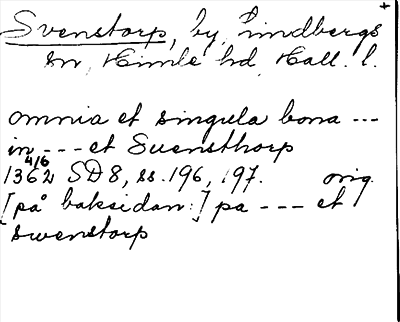 Svenstorp, by, Lindbergs +
sn, Himle hd, Hall. l.
omnia et singula bona ---
in --- et Suensthorp
4/6
1362 SD8, ss. 196, 197. orig.
[på baksidan:] pa --- et
swenstorp